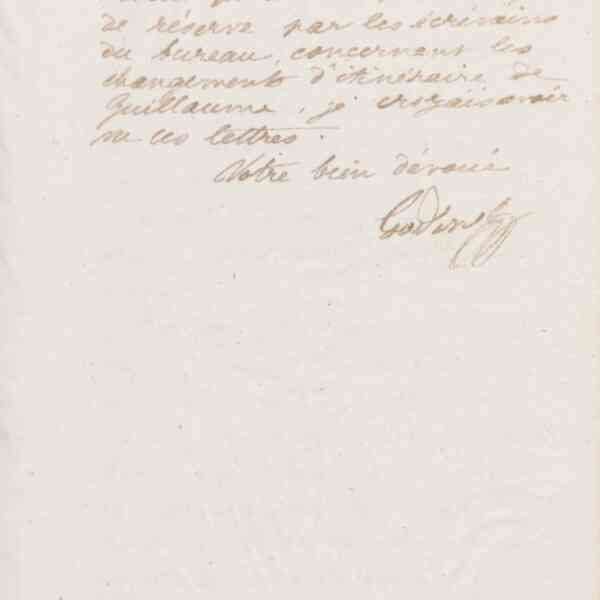 de réserve par les écrivains
du bureau, concernant les
changements d'itinéraire de
Guillaume, je croyais avoir
vu ces lettres.
Votre bien dévoué
Godin